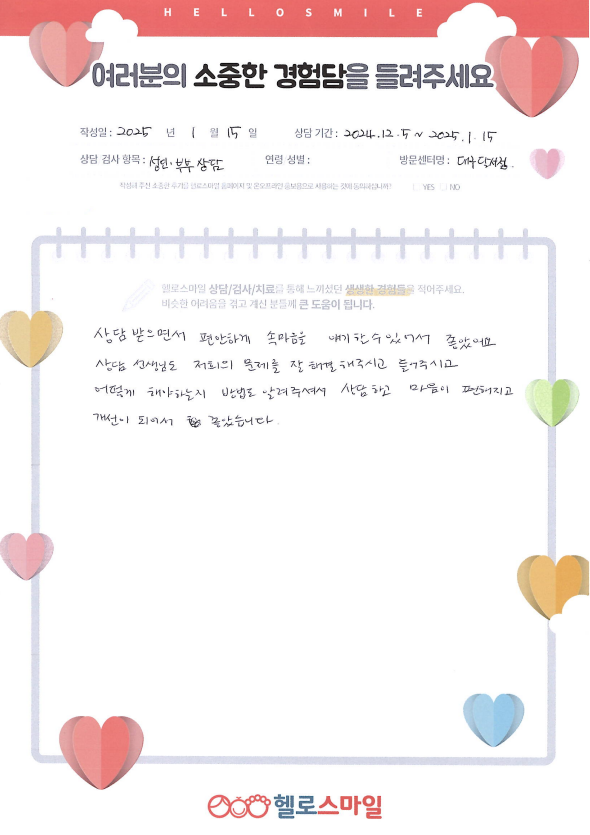 HELLOSMILE
여러분의 소중한 경험담을 들려주세요
작성일 : 2025 년 1 월 15 일 상담 기간 : 2024.12.5 ~ 2025.1.15
상담 검사 항목 : 성인·부부상담 연령 성별 : 방문센터명 : 대구달서점.
작성해 주신 소중한 후기를 헬로스마일 홈페이지 및 온오프라인 홍보용으로 사용하는 것에 동의하십니까? YES NO
헬로스마일 상담/검사/치료를 통해 느끼셨던 생생한 경험들을 적어주세요.
비슷한 어려움을 겪고 계신 분들께 큰 도움이 됩니다.
상담 받으면서 편안하게 속마음을 얘기할 수 있어서 좋았어요
상담 선생님도 저희의 문제를 잘 해결해주시고 들어주시고
어떻게 해야하는지 방법도 알려주셔서 상담하고 마음이 편해지고
개선이 되어서 좋았습니다.
헬로스마일